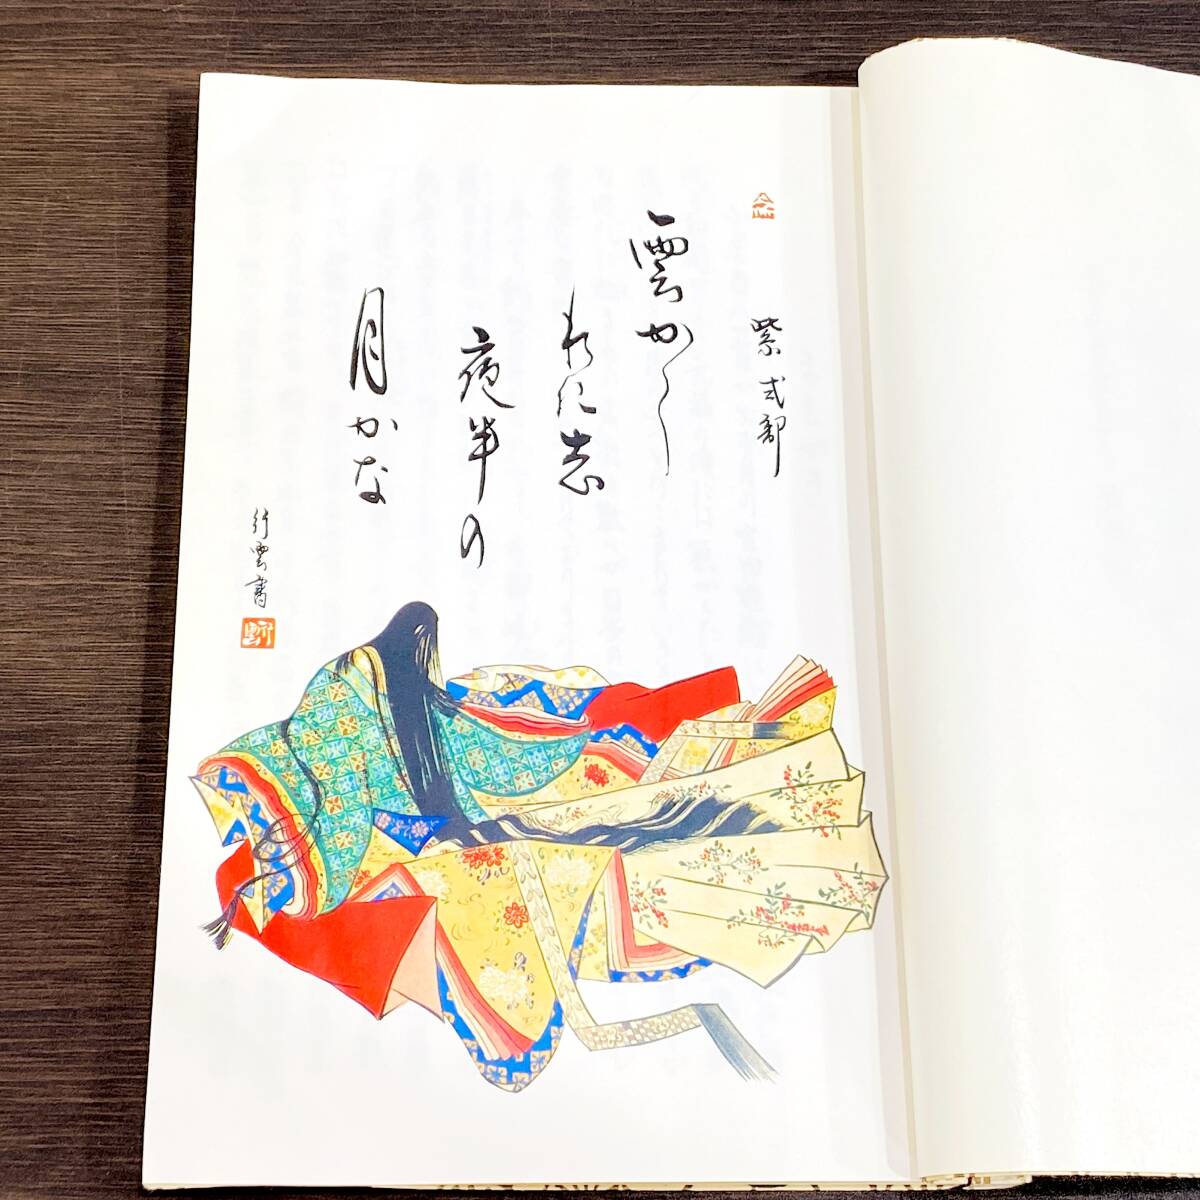 紫式部
雲かく
れにし
夜半の
月かな
行雲書
行雲